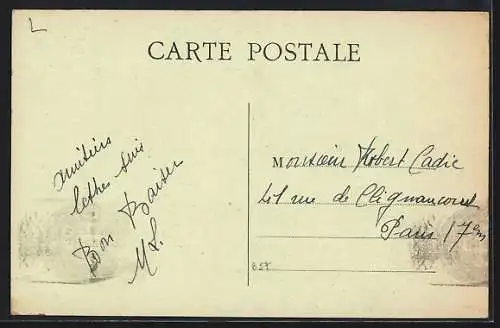 L
CARTE POSTALE
lettre suis
Bon Baiser
Monsieur Robert Cadic
rue de Clignancourt
Paris 17em